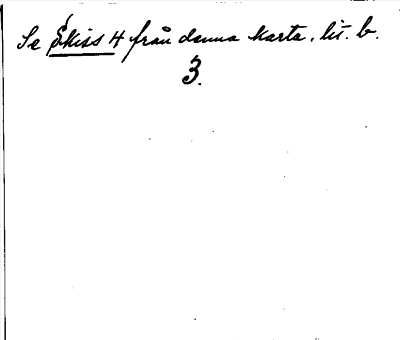 Se Skiss 4 från denna karta, lit. b.
3.